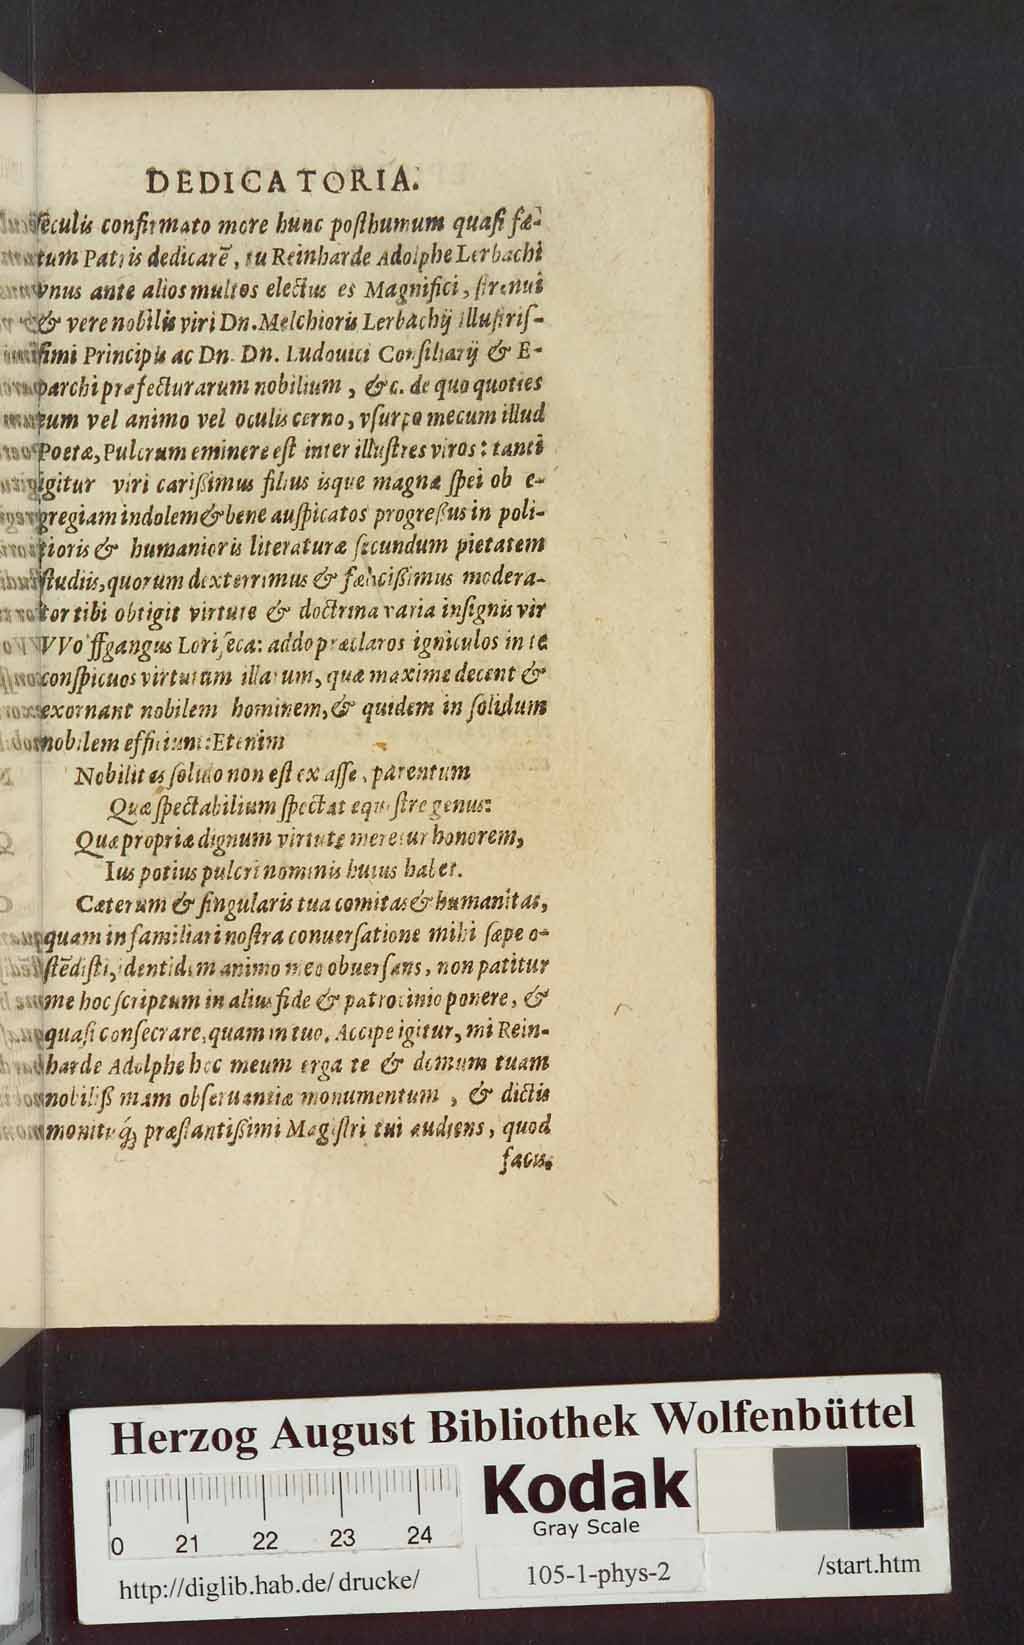 DEDICATORIA.
seculis confirmato more hunc posthumum quasi fæ-
tum Patris dedicarē, tu Reinharde Adolphe Lerbachi
vnus ante alios multos electus es Magnifici, strenui
& vere nobilis viri Dn. Melchioris Lerbachij illustris-
simi Principis ac Dn. Dn. Ludouici Consiliarij & E-
parchi præfecturarum nobilium, &c. de quo quoties
eum vel animo vel oculis cerno, vsurpo mecum illud
Poetæ, Pulcrum eminere est inter illustres viros: tanti
igitur viri carißimus filius isque magnæ spei ob e-
gregiam indolem & bene auspicatos progreßus in poli-
tioris & humanioris literaturæ secundum pietatem
studiis, quorum dexterrimus & fælicißimus modera-
tor tibi obtigit virtute & doctrina varia insignis vir
VVolffgangus Loriseca: addo præclaros igniculos in te
conspicuos virtutum illarum, quæ maxime decent &
exornant nobilem hominem, & quidem in solidum
nobilem efficiunt: Etenim
Nobilitas solido non est ex asse, parentum
Quæ spectabilium spectat equestre genus:
Quæ propriæ dignum virtute meretur honorem,
Ius potius pulcri nominis huius habet.
Cæterum & singularis tua comitas & humanitas,
quam in familiari nostra conuersatione mihi sæpe o-
stēdisti, identidem animo meo obuersans, non patitur
me hoc scriptum in alius fide & patrocinio ponere, &
quasi consecrare, quam in tuo. Accipe igitur, mi Rein-
harde Adolphe hoc meum erga te & domum tuam
nobilißimam obseruantiæ monumentum, & dictis
monitisq́; præstantißimi Magistri tui audiens, quod
facis,
Herzog August Bibliothek Wolfenbüttel
0 21 22 23 24
Kodak
Gray Scale
http://diglib.hab.de/drucke/ 105-1-phys-2 /start.htm